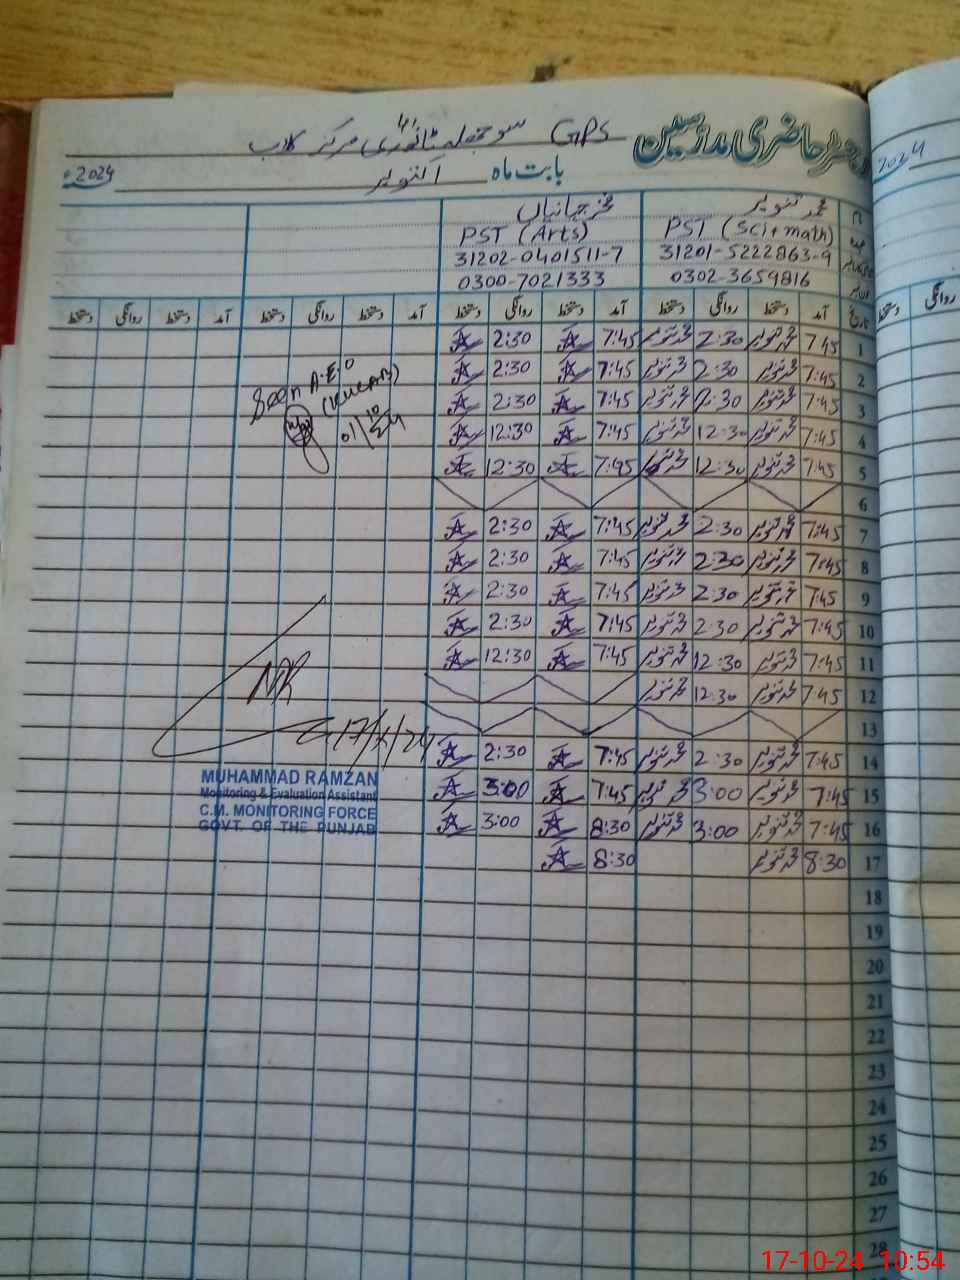 رجسٹر حاضری مدرسین
GPS سوجھلہ ٹانوری مرکز کلاب
بابت ماہ اکتوبر 2024ء
2024
محمد تنویر
PST (Sci+math)
31201-5222863-9
0302-3659816
PST (Arts)
31202-0401511-7
0300-7021333
تاریخ آمد دستخط روانگی دستخط آمد دستخط روانگی دستخط آمد دستخط روانگی دستخط آمد دستخط روانگی دستخط
روانگی دستخط
1 7:45 محمد تنویر 2:30 محمد تنویر 7:45 2:30
2 7:45 محمد تنویر 2:30 محمد تنویر 7:45 2:30
3 7:45 محمد تنویر 2:30 محمد تنویر 7:45 2:30
4 7:45 محمد تنویر 12:30 محمد تنویر 7:45 12:30
5 7:45 محمد تنویر 12:30 محمد تنویر 7:45 12:30
6
7 7:45 محمد تنویر 2:30 محمد تنویر 7:45 2:30
8 7:45 محمد تنویر 2:30 محمد تنویر 7:45 2:30
9 7:45 محمد تنویر 2:30 محمد تنویر 7:45 2:30
10 7:45 محمد تنویر 2:30 محمد تنویر 7:45 2:30
11 7:45 محمد تنویر 12:30 محمد تنویر 7:45 12:30
12 7:45 محمد تنویر 12:30 محمد تنویر
13
14 7:45 محمد تنویر 2:30 محمد تنویر 7:45 2:30
15 7:45 محمد تنویر 3:00 محمد تنویر 7:45 3:00
16 7:45 محمد تنویر 3:00 محمد تنویر 8:30 3:00
17 8:30 محمد تنویر 8:30
18
19
20
21
22
23
24
25
26
27
28
Seen A.E.O
01/10/24
17/X/24
MUHAMMAD RAMZAN
Monitoring & Evaluation Assistant
C.M. MONITORING FORCE
GOVT. OF THE PUNJAB
17-10-24 10:54